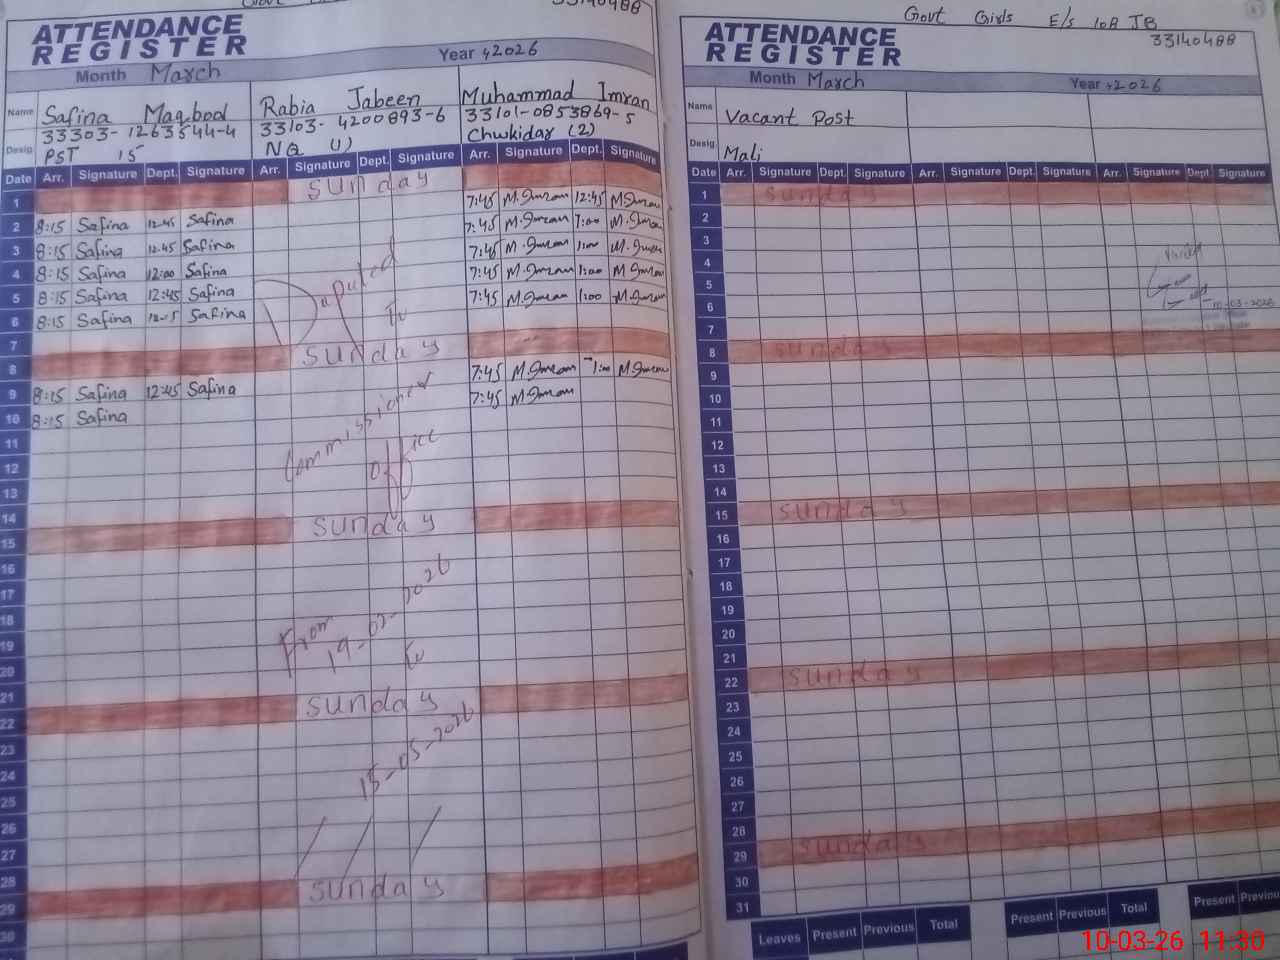 33140488
ATTENDANCE
REGISTER
Month March
Year 2026
Name Safina Maqbool
33303-1263544-4
Desig. PST 15
Rabia Jabeen
33103-4200893-6
NQ (1)
Muhammad Imran
33101-0853869-5
Chwkidar (2)
Date Arr. Signature Dept. Signature Arr. Signature Dept. Signature Arr. Signature Dept. Signature
1 sunday 7:45 M.Imran 12:45 M.Imran
2 8:15 Safina 12:45 Safina 7:45 M.Imran 1:00 M.Imran
3 8:15 Safina 12:45 Safina 7:45 M.Imran 1:00 M.Imran
4 8:15 Safina 12:00 Safina 7:45 M.Imran 1:00 M.Imran
5 8:15 Safina 12:45 Safina 7:45 M.Imran 1:00 M.Imran
6 8:15 Safina Safina
7
8 sunday 7:45 M.Imran 1:00 M.Imran
9 8:15 Safina 12:45 Safina 7:45 M.Imran
10 8:15 Safina
11
12
13
14
15 sunday
16
17
18
19
20
21
22 sunday
23
24
25
26
27
28
29 sunday
30
Daputed
To
Commissioner
office
From
19-02-2026
To
15-05-2026
Govt Girls E/s 108 JB
33140488
ATTENDANCE
REGISTER
Month March
Year 2026
Name Vacant Post
Desig. Mali
Date Arr. Signature Dept. Signature Arr. Signature Dept. Signature Arr. Signature Dept. Signature
1 sunday
2
3
4
5
6
10-03-2026
7
8 sunday
9
10
11
12
13
14
15 sunday
16
17
18
19
20
21
22 sunday
23
24
25
26
27
28
29 sunday
30
31
Leaves Present Previous Total Present Previous Total Present Previous
10-03-26 11:30